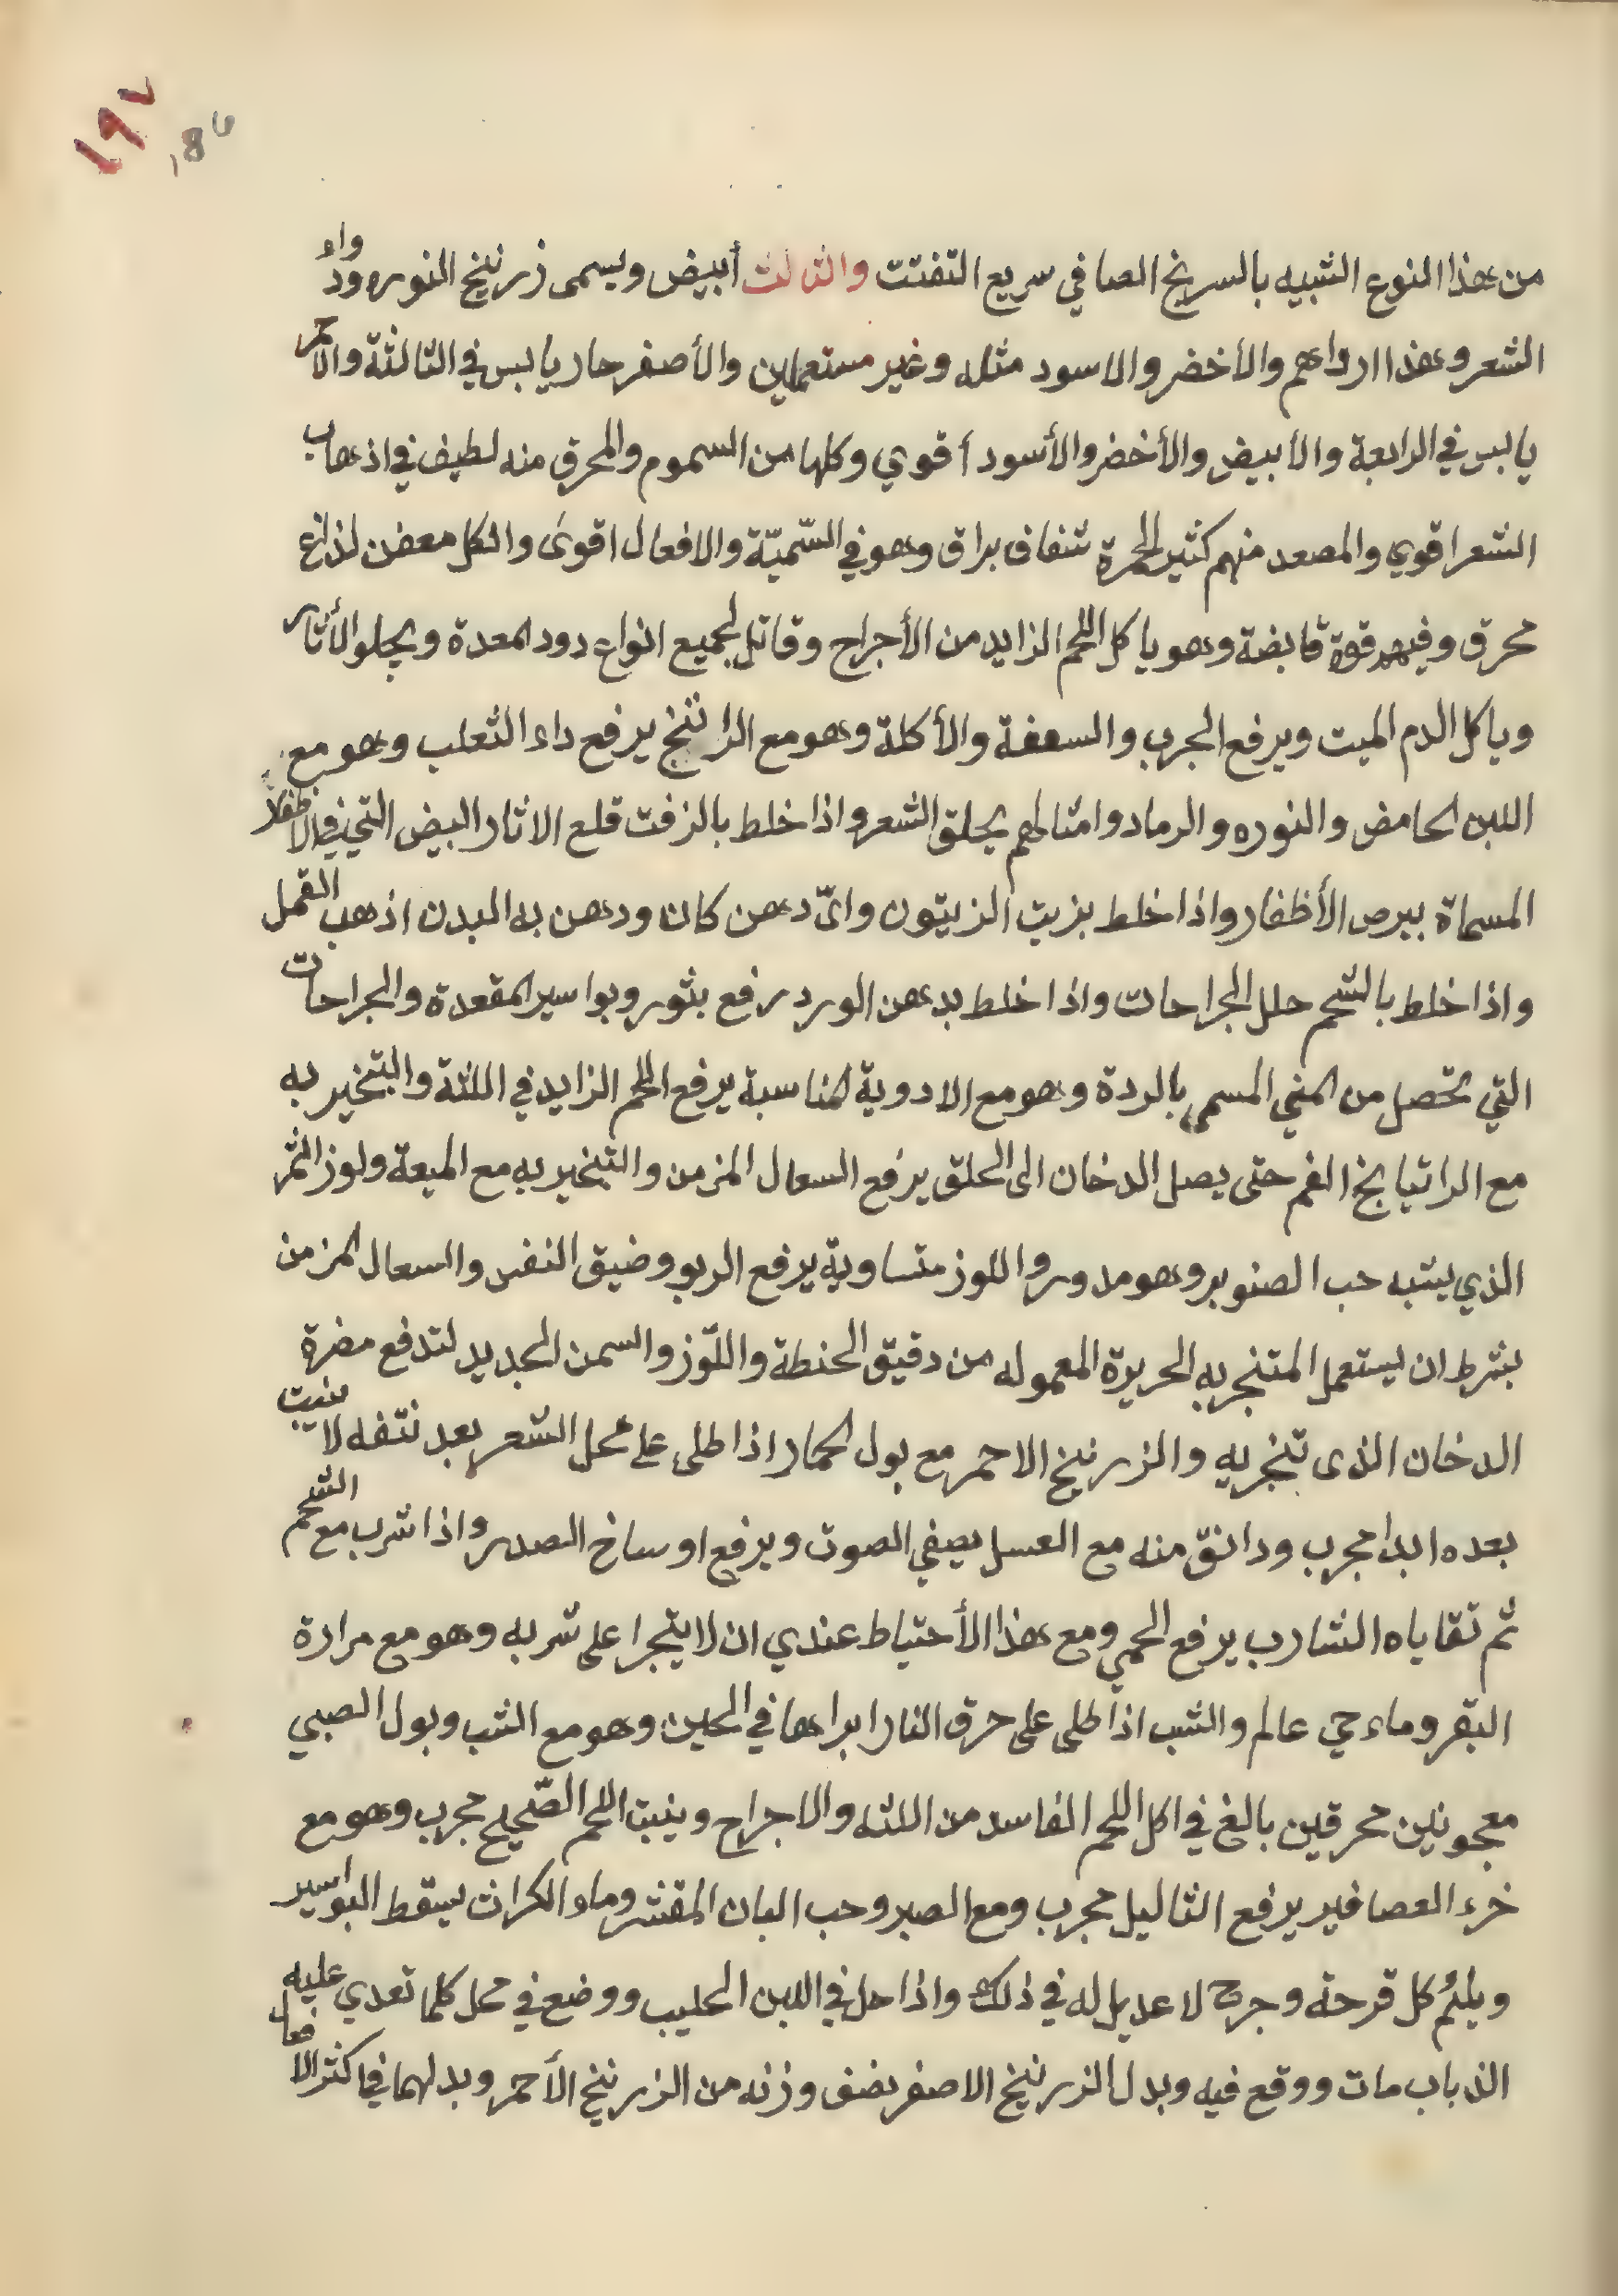 ١٩٧
186
من هذا النوع الشبيه بالسرنج الصافي سريع التفتت والثالث أبيض ويسمى زرنيخ النوره ودواء
الشعر وهذا ارداهم والأخضر والاسود مثله وغير مستعملين والأصفر حار يابس في الثالثة والأحمر
يابس في الرابعة والأبيض والأخضر والأسود أقوي وكلها من السموم والمحرق منه لطيف في اذهاب
الشعر اقوي والمصعد منهم كثير الحمرة شفاف براق وهو في السّميّة والافعال اقوى والكل معفن لذاع
محرق وفيهم قوة قابضة وهو ياكل اللحم الزايد من الأجراح وقاتل لجميع انواع دود المعدة ويجلو الأثار
وياكل الدم الميت ويرفع الجرب والسعفة والأكلة وهو مع الراتنج يرفع داء الثعلب وهو مع
اللبن الحامض والنوره والرماد وامثالهم يحلق الشعر واذا خلط بالزفت قلع الاثار البيض التي في الاظفار
المسماة ببرص الأظفار واذا خلط بزيت الزيتون وايّ دهن كان ودهن به البدن اذهب القمل
واذا خلط بالشحم حلل الجراحات واذا خلط بدهن الورد رفع بثور وبواسير المقعدة والجراحات
التي تحصل من المني المسمي بالردة وهو مع الادوية المناسبة يرفع اللحم الزايد في اللثة والتبخير به
مع الراتيانج الفم حتى يصل الدخان الى الحلق يرفع السعال المزمن والتبخير به مع الميعة ولوز الثمر
الذي يشبه حب الصنوبر وهو مدور واللوز متساوية يرفع الربو وضيق النفس والسعال المزمن
بشرط ان يستعمل المتبخر به الحريرة المعموله من دقيق الحنطة واللّوز والسمن الجديد لتدفع مضرة
الدخان الذى تبخر به والزرنيخ الاحمر مع بول الحمار اذا طلى على محل الشعر بعد نتفه لا ينبت
بعده ابدا مجرب ودانق منه مع العسل يصفي الصوت ويرفع اوساخ الصدر واذا شرب مع الشحم
ثم تقاياه الشارب يرفع الحمي ومع هذا الأحتياط عندي ان لا يتجرا على شربه وهو مع مرارة
البقر وماء حي عالم والشب اذا طلى على حرق النار ابراها في الحين وهو مع الشب وبول الصبي
معجونين محرقين بالغ في اكل اللحم الفاسد من اللثه والاجراح وينبت اللحم الصّحيح مجرب وهو مع
خرء العصافير يرفع الثاليل مجرب ومع الصبر وحب البان المقشر وماء الكراث يسقط البواسير
ويلئم كل قرحة وجرح لا عديل له في ذلك واذا حل في اللبن الحليب ووضع في محل كلما تعدي عليه
الذباب مات ووقع فيه وبدل الزرنيخ الاصفر نصف وزنه من الزرنيخ الأحمر وبدلهما في اكثر الافعال